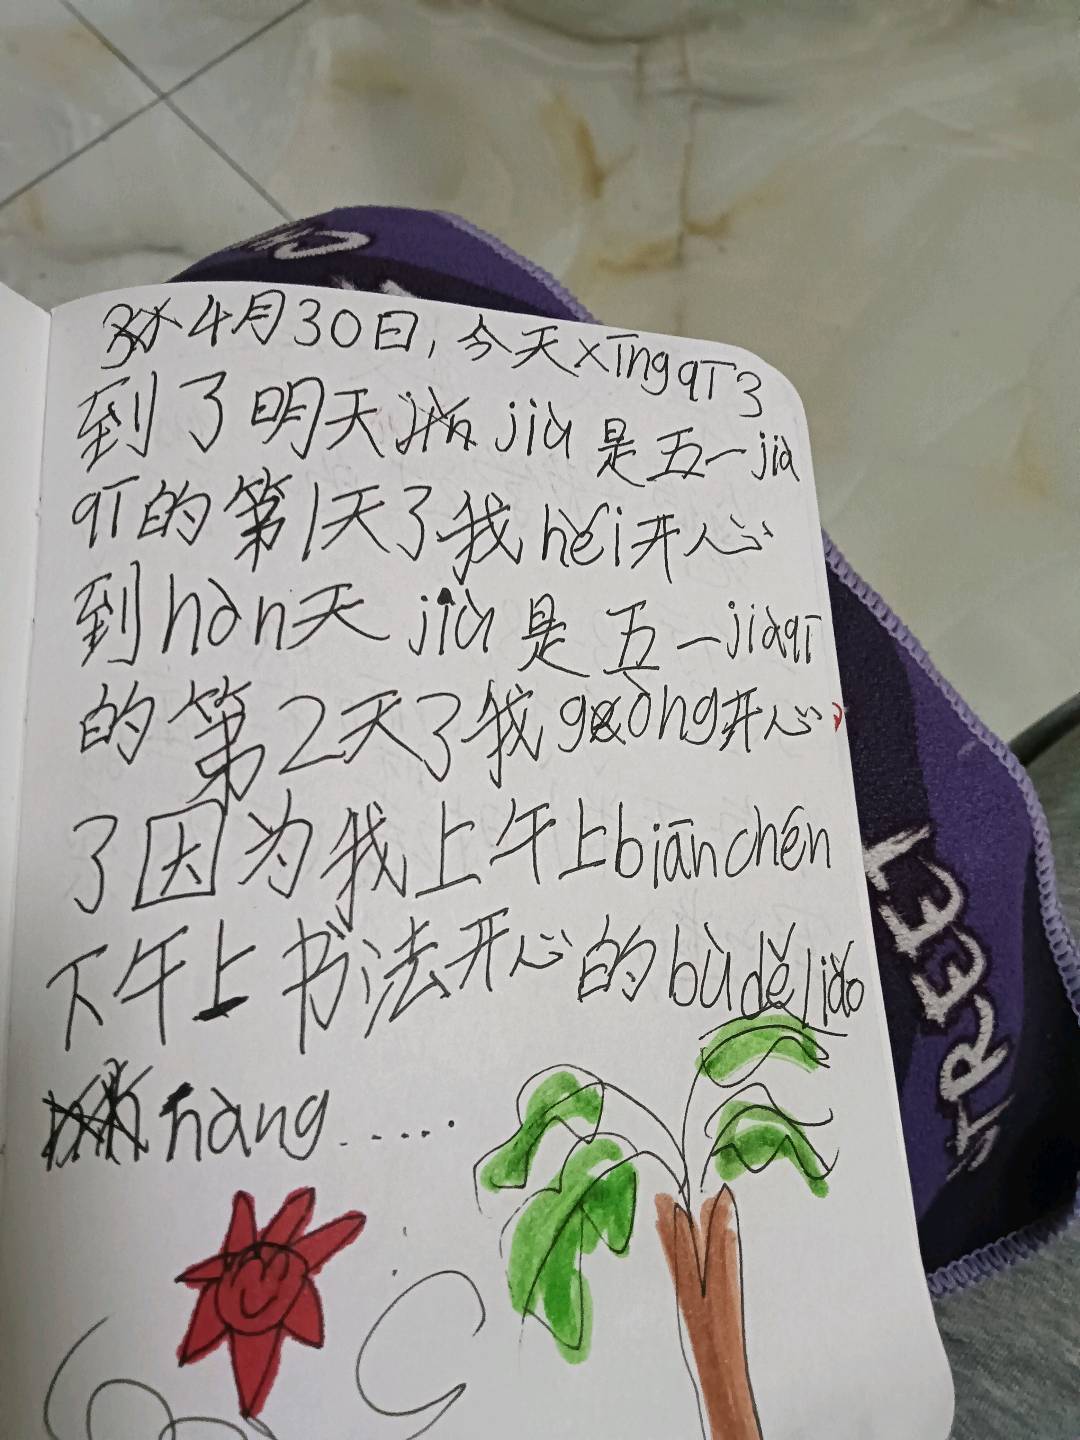 4月30日,今天xīngqī3
到了明天jiù是五一jià
qī的第1天了我héi开心
到hàn天jiù是五一jiàqī
的第2天了我gèòng开心
了因为我上午上biānchén
下午上书法开心的bùděliǎo
hàng......
STREET